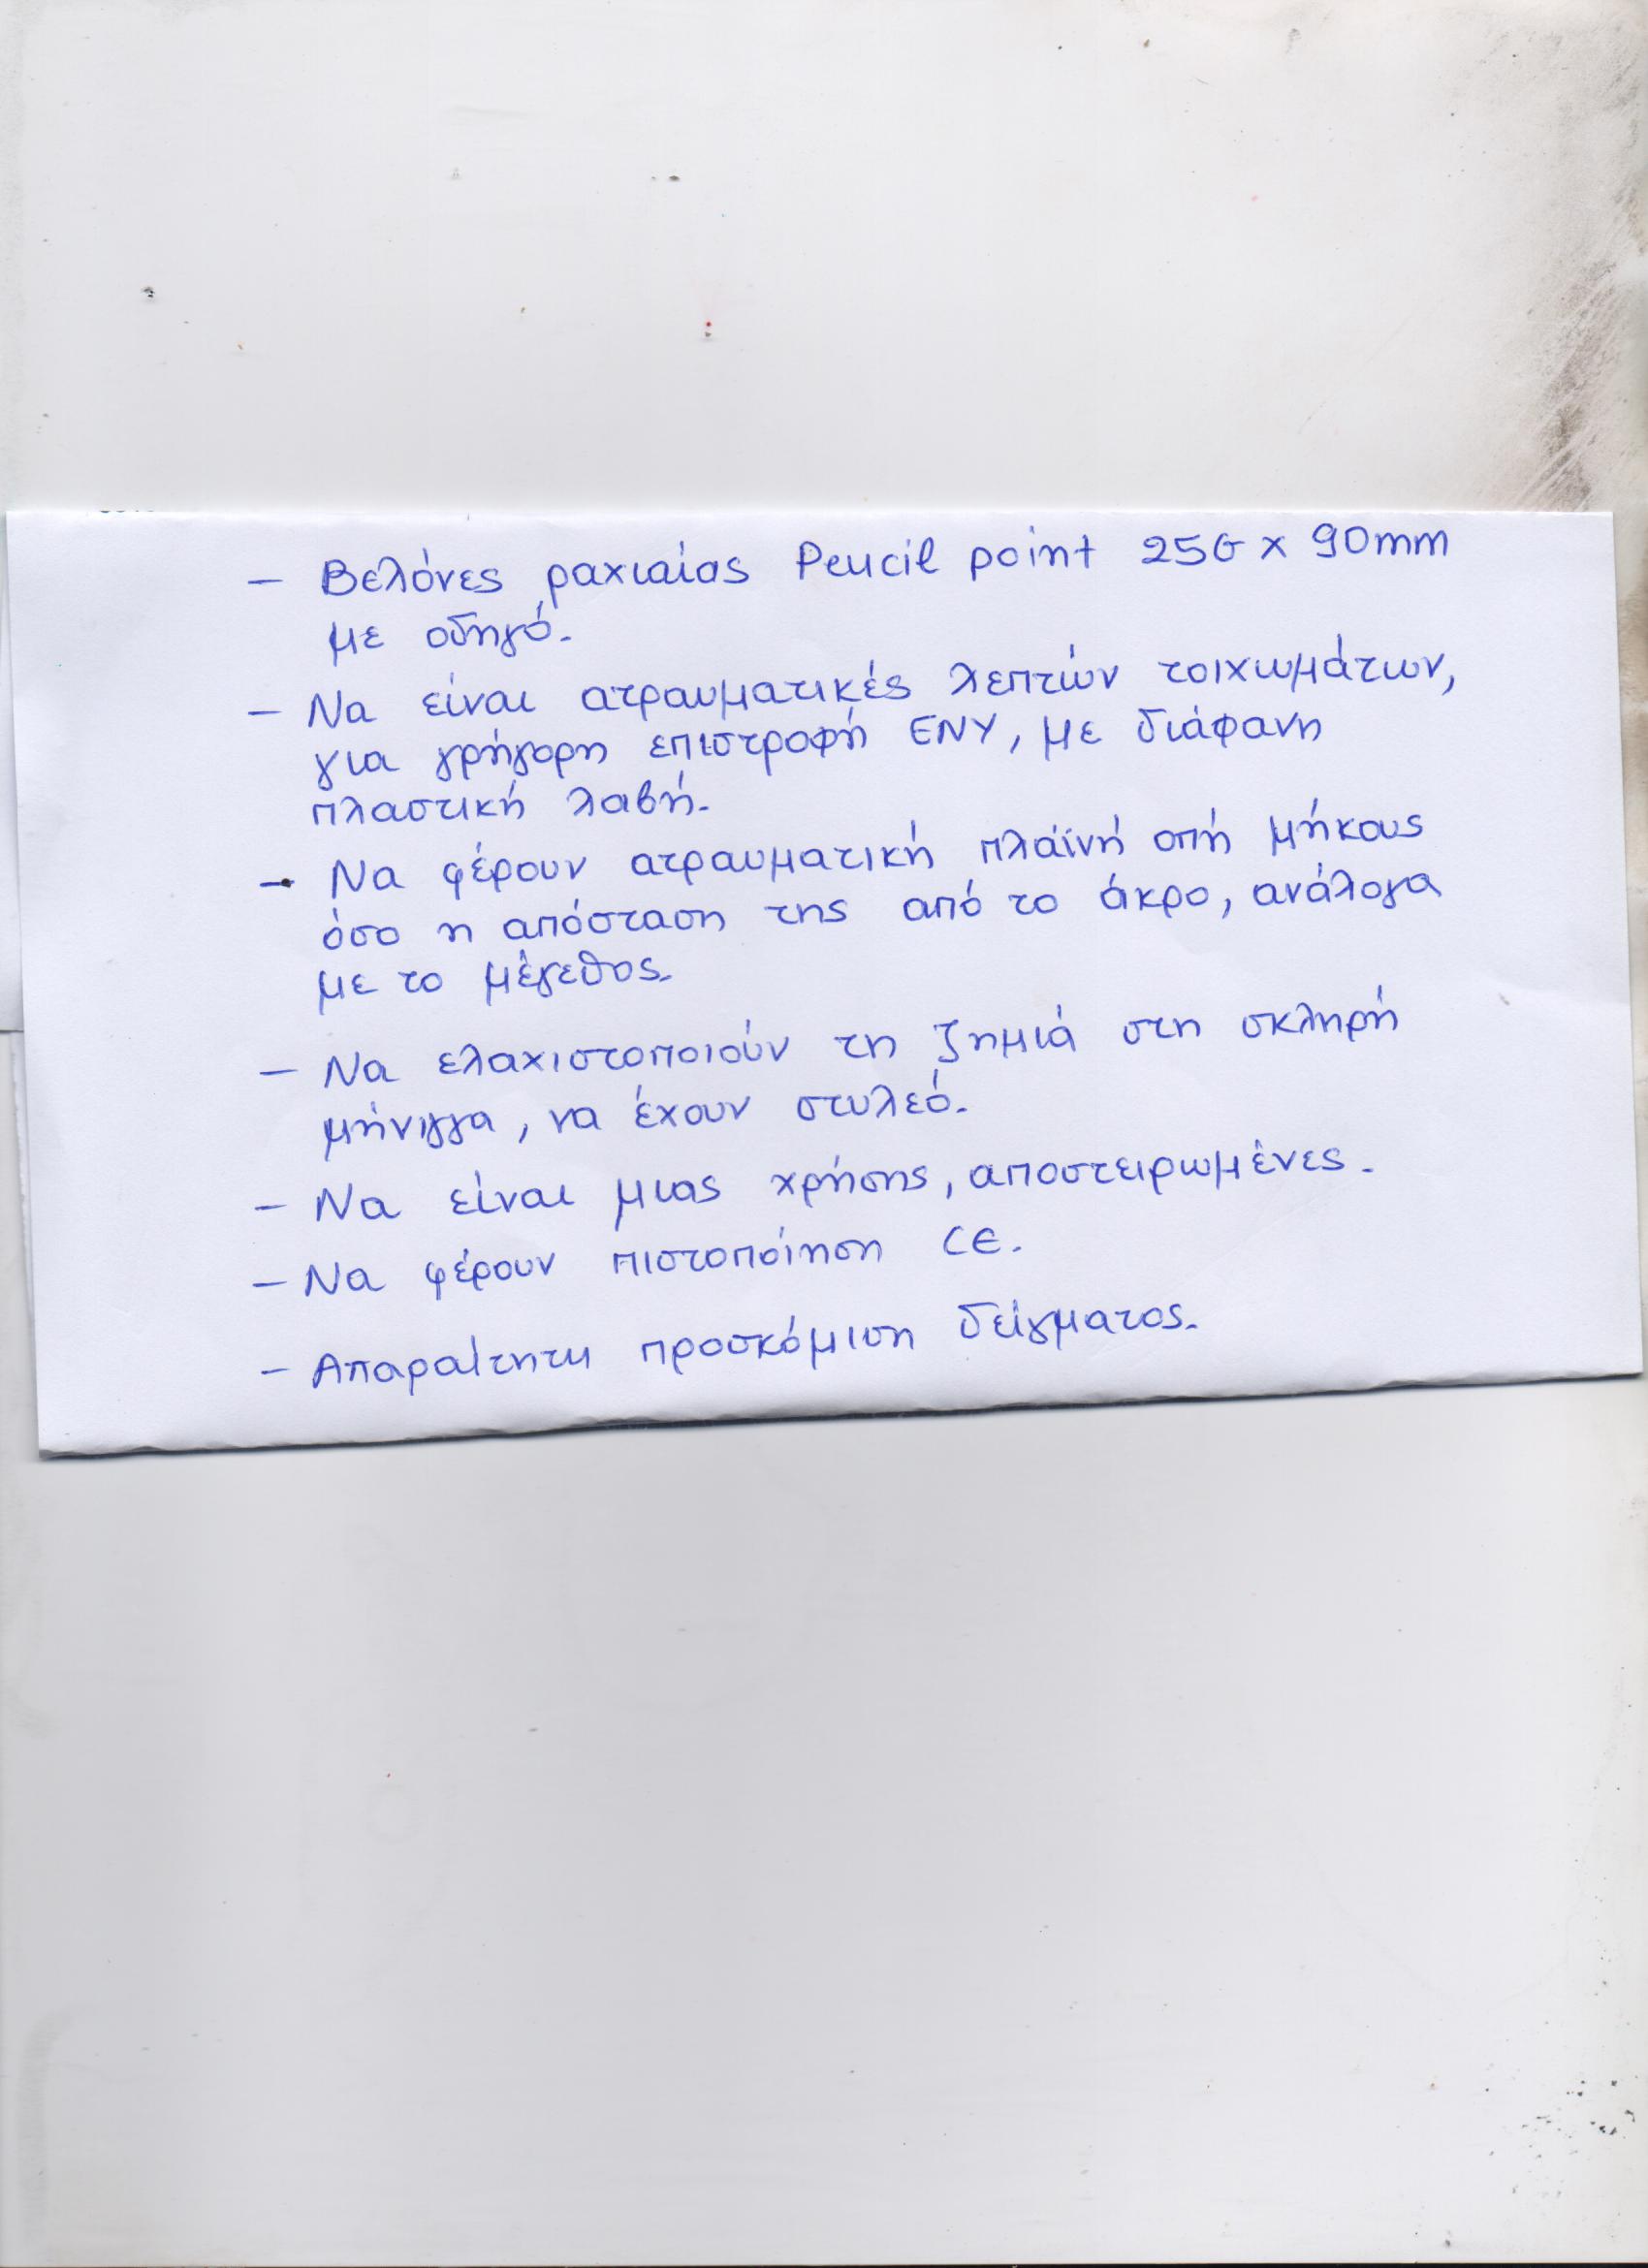 – Βελόνες ραχιαίας Pencil point 25G x 90mm
με οδηγό.
– Να είναι ατραυματικές λεπτών τοιχωμάτων,
για γρήγορη επιστροφή ΕΝΥ, με διάφανη
πλαστική λαβή.
– Να φέρουν ατραυματική πλάϊνή οπή μήκους
όσο η απόσταση της από το άκρο, ανάλογα
με το μέγεθος.
– Να ελαχιστοποιούν τη ζημιά στη σκληρή
μήνιγγα, να έχουν στυλεό.
– Να είναι μιας χρήσης, αποστειρωμένες.
– Να φέρουν πιστοποίηση CE.
– Απαραίτητη προσκόμιση δείγματος.